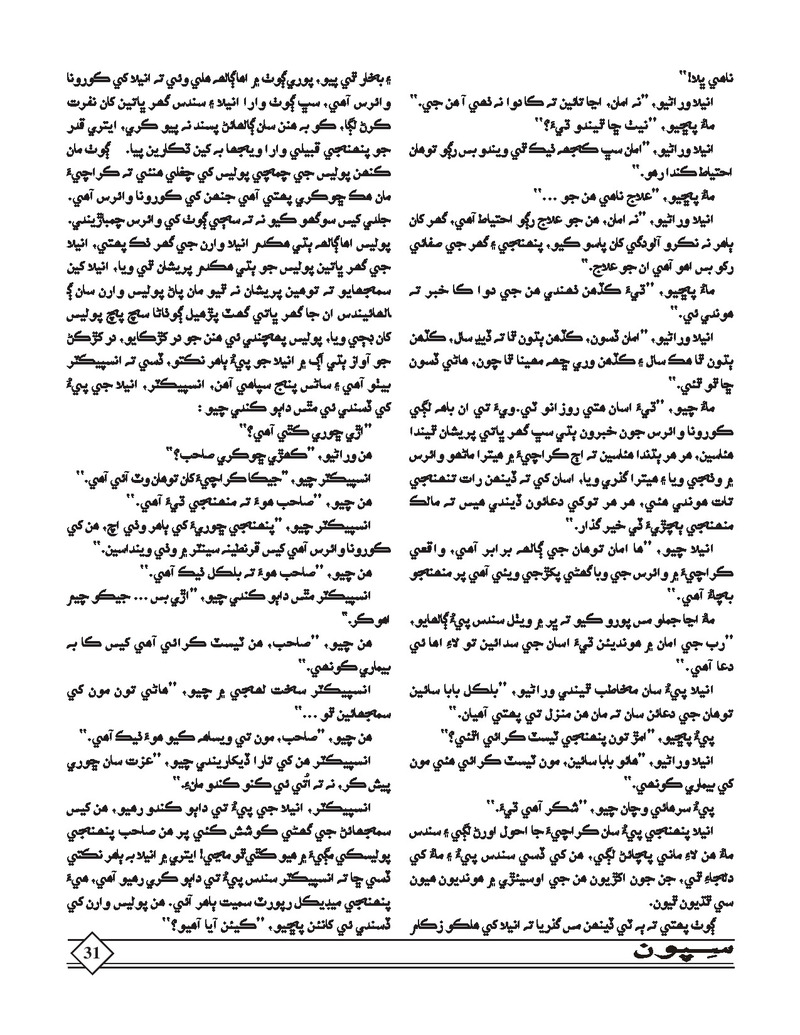 ناهي ڀلا!“
انيلا وراڻيو، ”نه امان، اڃا تائين ته ڪا دوا نه ٺهي آ هن جي.“
ماءُ پڇيو، ”نيٺ ڇا ٿيندو ڌيءُ؟“
انيلا وراڻيو، ”امان سڀ ڪجهه ٺيڪ ٿي ويندو بس رڳو توهان
احتياط ڪندا رهو.“
ماءُ پڇيو، ”علاج ناهي هن جو ...“
انيلا وراڻيو، ”نه امان، هن جو علاج رڳو احتياط آهي، گهر کان
ٻاهر نه نڪرو آلودگي کان پاسو ڪيو، پنهنجي ۽ گهر جي صفائي
رکو بس اهو آهي ان جو علاج.“
ماءُ پڇيو، ”ڌيءُ ڪڏهن ٺهندي هن جي دوا ڪا خبر ته
هوندي ئي.“
انيلا وراڻيو، ”امان ڏسون، ڪڏهن ٻڌون ٿا ته ڏيڍ سال، ڪڏهن
ٻڌون ٿا هڪ سال ۽ ڪڏهن وري ڇهه مهينا ٿا چون، هاڻي ڏسون
ڇا ٿو ٿئي.“
ماءُ چيو، ”ڌيءُ اسان هتي روز انو ٽي.ويءَ تي ان باهه لڳي
ڪورونا وائرس جون خبرون ٻڌي سڀ گهر ڀاتي پريشان ٿيندا
هئاسين، هر هر ٻڌندا هئاسين ته اڄ ڪراچيءَ ۾ هيترا ماڻهو وائرس
۾ وٺجي ويا ۽ هيترا گذري ويا، اسان کي ته ڏينهن رات تنهنجي
تات هوندي هئي، هر هر توکي دعائون ڏيندي هيس ته مالڪ
منهنجي ٻچڙيءَ تي خير گذار.“
انيلا چيو، ”ها امان توهان جي ڳالهه برابر آهي، واقعي
ڪراچيءَ ۾ وائرس جي وبا گهڻي پکڙجي ويئي آهي پر منهنجو
بچاءُ آهي.“
ماءُ اڃا جملو مس پورو ڪيو ته ڀر ۾ ويٺل سندس پيءُ ڳالهايو،
”رب جي امان ۾ هوندينءَ ڌيءُ اسان جي سدائين تو لاءِ اها ئي
دعا آهي.“
انيلا پيءُ سان مخاطب ٿيندي وراڻيو، ”بلڪل بابا سائين
توهان جي دعائن سان ته مان هن منزل تي پهتي آهيان.“
پيءُ پڇيو، ”امڙ تون پنهنجي ٽيسٽ ڪرائي اٿئي؟“
انيلا وراڻيو، ”هائو بابا سائين، مون ٽيسٽ ڪرائي هئي مون
کي بيماري ڪونهي.“
پيءُ سرهائي وچان چيو، ”شڪر آهي ڌيءُ.“
انيلا پنهنجي پيءُ سان ڪراچيءَ جا احوال اورڻ لڳي ۽ سندس
ماءُ هن لاءِ ماني پچائڻ لڳي، هن کي ڏسي سندس پيءُ ۽ ماءُ کي
دلڃاءِ ٿي، جن جون اکڙيون هن جي اوسيئڙي ۾ هونديون هيون
سي ٿڌيون ٿيون.
ڳوٺ پهتي ته ٻه ٽي ڏينهن مس گذريا ته انيلا کي هلڪو زڪام
۽ بخار ٿي پيو، پوري ڳوٺ ۾ اها ڳالهه هلي وئي ته انيلا کي ڪورونا
وائرس آهي، سڀ ڳوٺ وارا انيلا ۽ سندس گهر ڀاتين کان نفرت
ڪرڻ لڳا، ڪو به هنن سان ڳالهائڻ پسند نه پيو ڪري، ايتري قدر
جو پنهنجي قبيلي وارا ويجها به کين ڌڪارين پيا. ڳوٺ مان
ڪنهن پوليس جي چمچي پوليس کي چغلي هنئي ته ڪراچيءَ
مان هڪ ڇوڪري پهتي آهي جنهن کي ڪورونا وائرس آهي.
جلدي ڪيس سوگهو ڪيو نه ته سڄي ڳوٺ کي وائرس چمباڙيندي.
پوليس اها ڳالهه ٻڌي هڪدم انيلا وارن جي گهر ڊڪ پهتي، انيلا
جي گهر ڀاتين پوليس جو ٻڌي هڪدم پريشان ٿي ويا، انيلا کين
سمجهايو ته توهين پريشان نه ٿيو مان پاڻ پوليس وارن سان ڳ
الهائينديس ان جا گهر ڀاتي گهٽ پڙهيل ڳوٺاڻا سچ پچ پوليس
کان ڊڄي ويا، پوليس پهچندي ئي هنن جو در کڙڪايو، در کڙڪڻ
جو آواز ٻڌي اڱڻ ۾ انيلا جو پيءُ ٻاهر نڪتو، ڏسي ته انسپيڪٽر
بيٺو آهي ۽ ساڻس پنج سپاهي آهن، انسپيڪٽر، انيلا جي پيءُ
کي ڏسندي ئي مٿس دٻاو ڪندي چيو :
”اڙي ڇوري ڪٿي آهي؟“
هن وراڻيو، ”ڪهڙي ڇوڪري صاحب؟“
انسپيڪٽر چيو، ”جيڪا ڪراچيءَ کان توهان وٽ آئي آهي.“
هن چيو، ”صاحب هوءَ ته منهنجي ڌيءُ آهي.“
انسپيڪٽر چيو، ”پنهنجي ڇوريءَ کي ٻاهر وٺي اچ، هن کي
ڪورونا وائرس آهي کيس قرنطينه سينٽر ۾ وٺي وينداسين.“
هن چيو، ”صاحب هوءَ ته بلڪل ٺيڪ آهي.“
انسپيڪٽر مٿس دٻاو ڪندي چيو، ”اڙي بس ... جيڪو چيم
اهو ڪر.“
هن چيو، ”صاحب، هن ٽيسٽ ڪرائي آهي کيس ڪا به
بيماري ڪونهي.“
انسپيڪٽر سخت لهجي ۾ چيو، ”هاڻي تون مون کي
سمجهائين ٿو ...“
هن چيو، ”صاحب، مون تي ويساهه ڪيو هوءَ ٺيڪ آهي.“
انسپيڪٽر هن کي تارا ڏيکاريندي چيو، ”عزت سان ڇوري
پيش ڪر، نه ته اُتي ئي ڪنو ڪندو مانءِ.“
انسپيڪٽر، انيلا جي پيءُ تي دٻاو ڪندو رهيو، هن کيس
سمجهائڻ جي گهڻي ڪوشش ڪئي پر هن صاحب پنهنجي
پوليسڪي مڳيءَ ۾ هيو ڪٿي ٿو مڃي! ايتري ۾ انيلا به ٻاهر نڪتي
ڏسي ڇا ته انسپيڪٽر سندس پيءُ تي دٻاو ڪري رهيو آهي، هيءَ
پنهنجي ميڊيڪل رپورٽ سميت ٻاهر آئي. هن پوليس وارن کي
ڏسندي ئي کانئن پڇيو، ”ڪيئن آيا آهيو؟“
31
سِپون